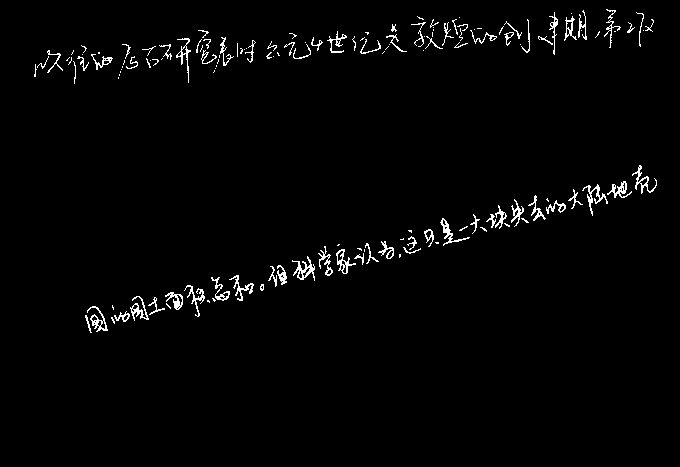 以往的历石研究表时公元4世纪是敦煌的创建期,第2次
国的国土面积总和。但科学家认为,这只是一大块失去的大陆地壳